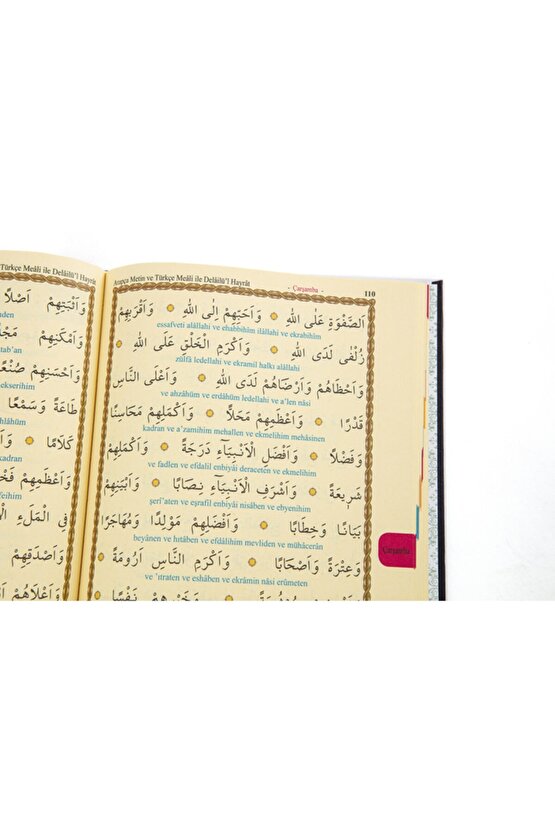 Türkçe Meâli ile Delâilü'l Hayrât
وَاَثْبَتِهِمْ اَصْلًا
وَاَمْكَنِهِمْ
وَاَحْسَنِهِمْ
ekserihim
طَاعَةً وَسَمْعًا
كَلَامًا
kadran
وَاَعْظَمِهِمْ
فِى الْمَلَءِ
وَاَصْدَقِهِمْ
وَاَعْلَاهُمْ
Arapça Metin ve Türkçe Meâli ile Delâilü'l Hayrât
- Çarşamba -
110
اَلصَّفْوَةِ عَلَى اللهِ وَاَحَبِّهِمْ اِلَى اللهِ وَاَقْرَبِهِمْ
essafveti alâllahi ve ehabbihim ilâllahi ve ekrabihim
زُلْفٰى لَدَى اللهِ وَاَكْرَمِ الْخَلْقِ عَلَى اللهِ
zülfâ ledellahi ve ekramil halkı alâllahi
وَاَحْظَاهُمْ وَاَرْضَاهُمْ لَدَى اللهِ وَاَعْلَى النَّاسِ
ve ahzâhüm ve erdâhüm ledellahi ve a'len nâsi
قَدْرًا وَاَعْظَمِهِمْ مَحَلًّا وَاَكْمَلِهِمْ مَحَاسِنًا
kadran ve a'zamihim mehallen ve ekmelihim mehâsinen
وَفَضْلًا وَاَفْضَلِ الْاَنْبِيَاءِ دَرَجَةً وَاَكْمَلِهِمْ
ve fadlen ve efdalil enbiyâi deraceten ve ekmelihim
شَرِيعَةً وَاَشْرَفِ الْاَنْبِيَاءِ نِصَابًا وَاَبْيَنِهِمْ
şerî'aten ve eşrafil enbiyâi nisâben ve ebyenihim
بَيَانًا وَخِطَابًا وَاَفْضَلِهِمْ مَوْلِدًا وَمُهَاجَرًا
beyânen ve hıtâben ve efdâlihim mevliden ve mühâcerân
وَعِتْرَةً وَاَصْحَابًا وَاَكْرَمِ النَّاسِ اَرُومَةً
ve 'ıtraten ve eshâben ve ekrâmin nâsi erûmeten
نَفْسًا
Çarşamba